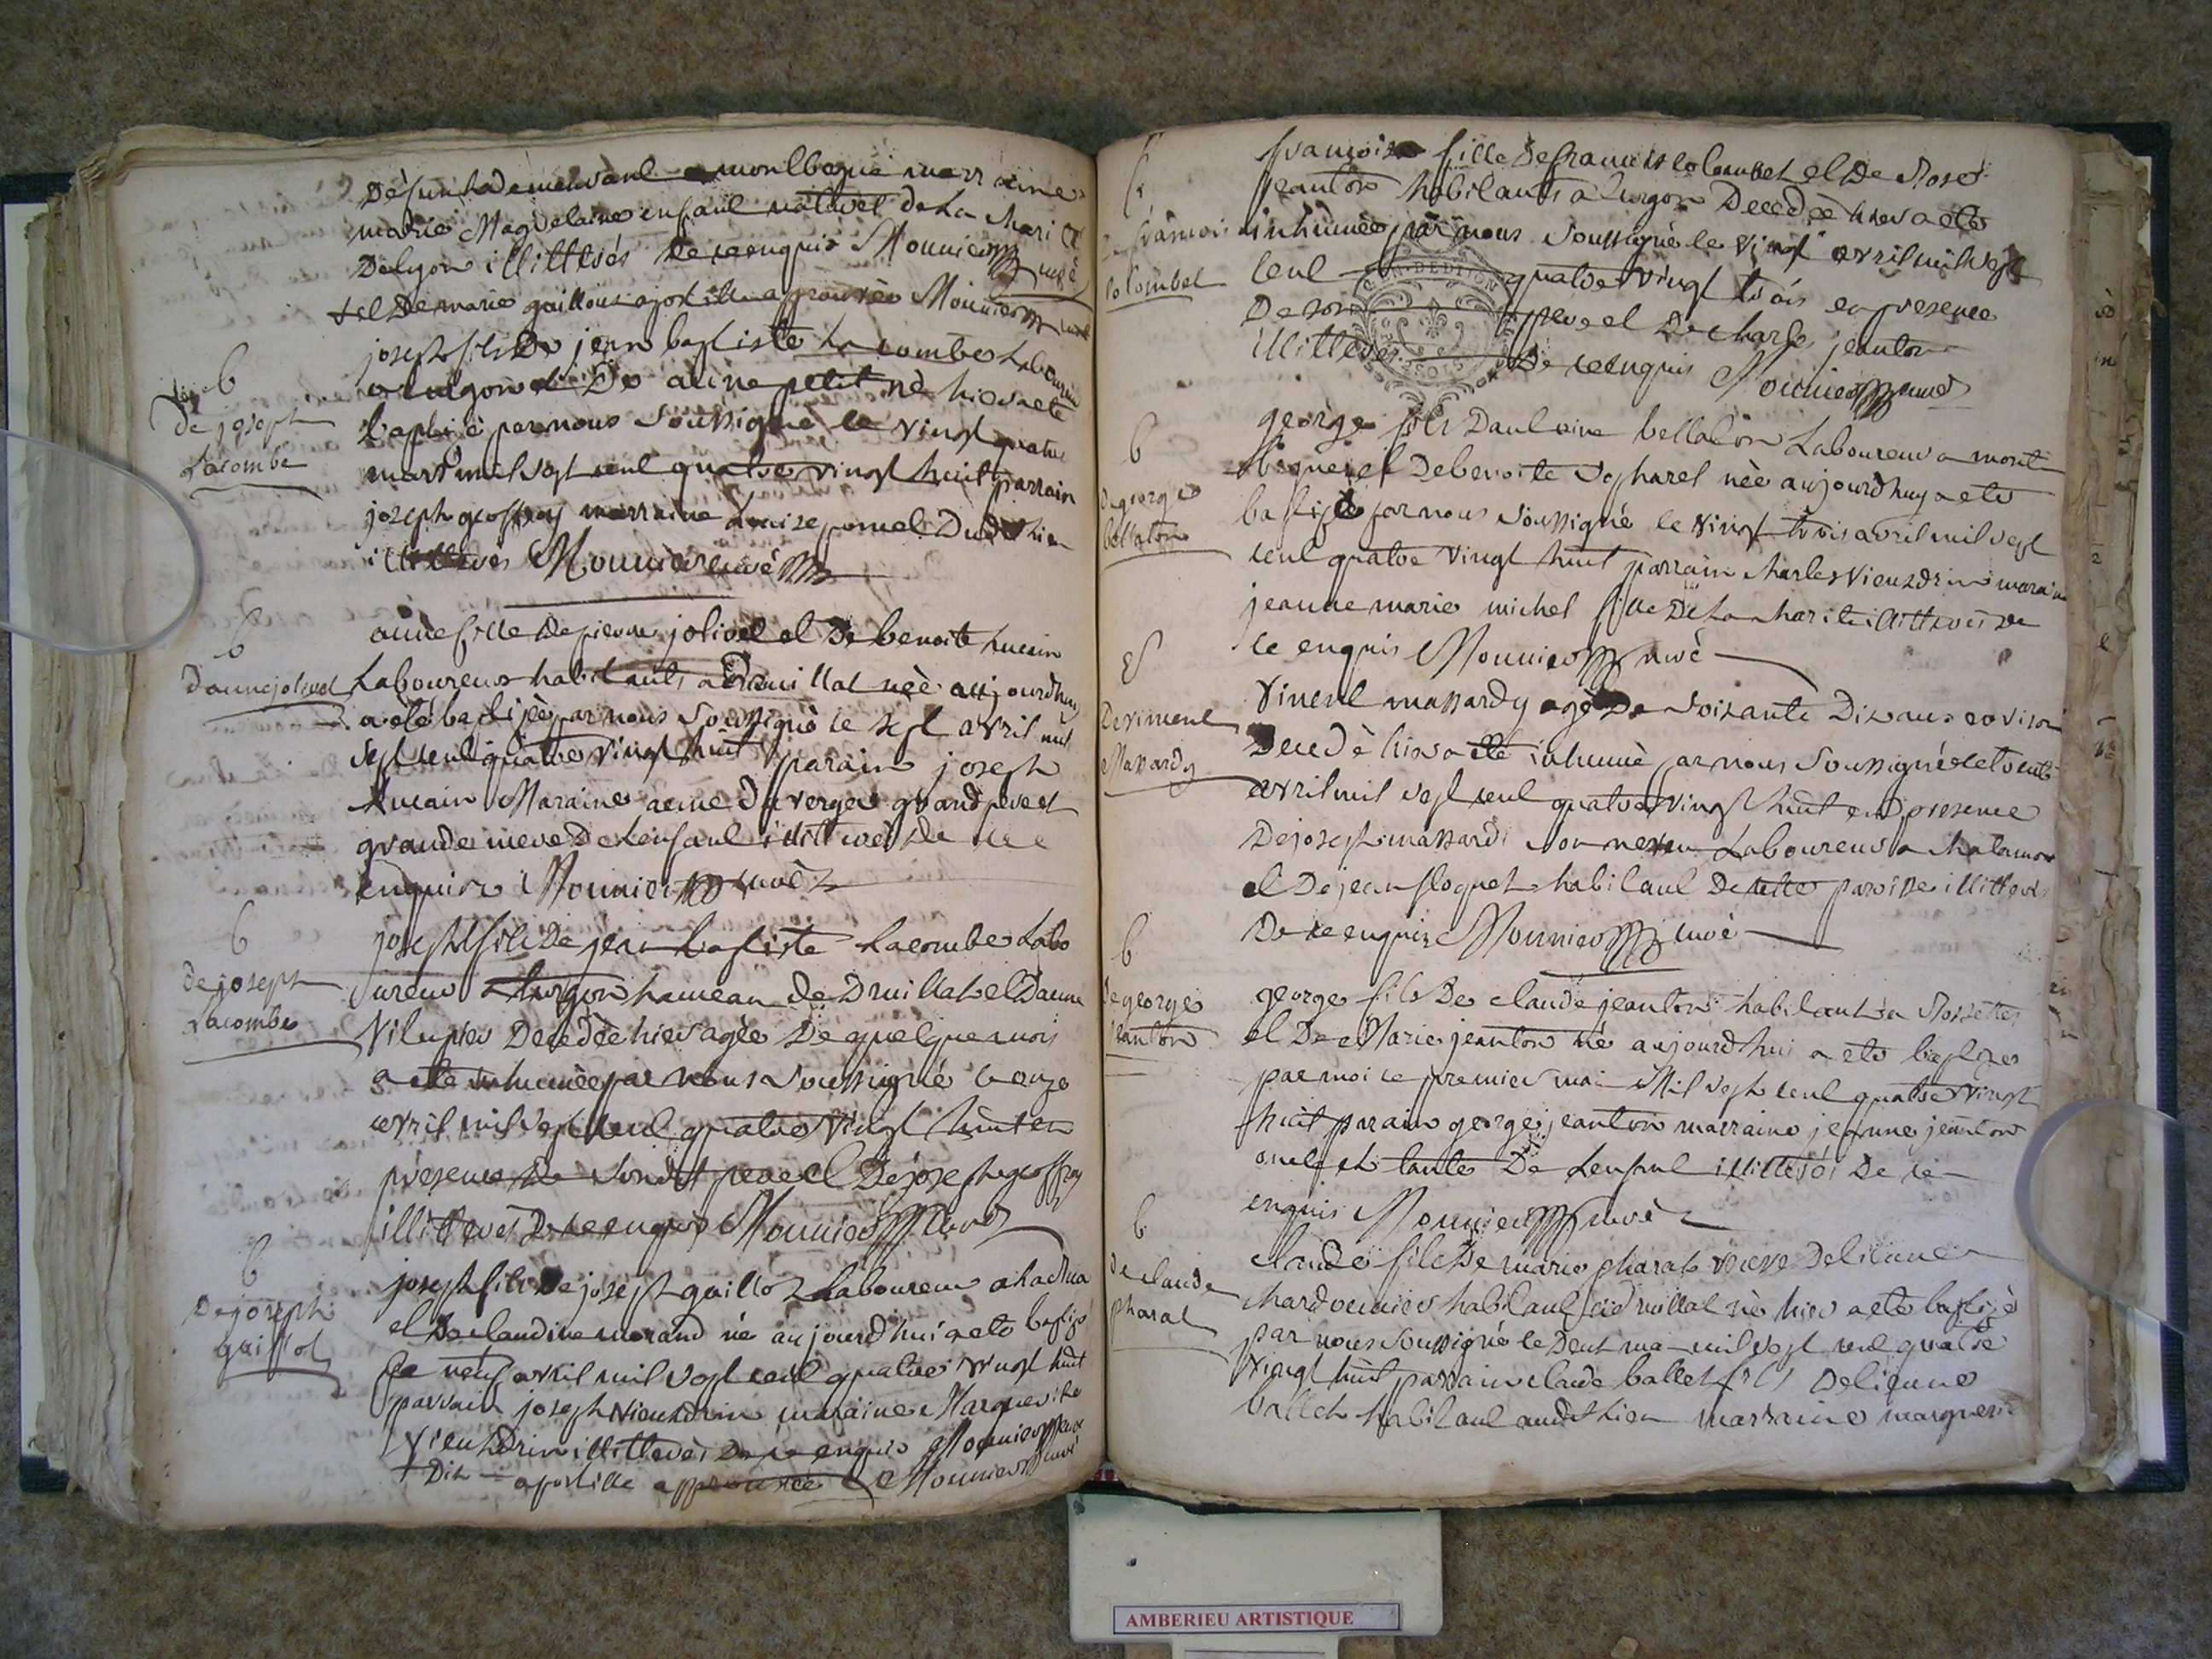 Défunt demeurant a montbegue marraine
marie Magdelaine enfant naturel de La Charité
De lyon illitterés De ce enquis Monnier curé
+ et De marie guillon apostille approuvée Monnier curé
b
de joseph
Lacombe
joseph fils De jean baptiste La combe Laboureur
a turgon et De anne petit né hier a eté
baptisé par nous Soussigné le vingt quatre
mars mil sept cent quatre vingt huit parrain
joseph geoffray marraine Louise pomel Dudit lieu
illitterés Monnier curé
b
d'anne jolivet
anne fille De pierre jolivet et De benoite humain
Laboureur habitants a Druillat née aujourdhuy
a eté baptisée par nous Soussigné le sept avril mil
sept cent quatre vingt huit parain joseph
humain Maraine anne duverger grand pere et
grande mere De Lenfant illitterés De ce
enquis Monnier curé
b
de joseph
Lacombe
joseph fils De jean baptiste Lacombe Labo
ureur a turgon hameau de Druillat et Danne
Decedée hier agée De quelque mois
a eté inhumée par nous Soussigné le onze
avril mil sept cent quatre vingt huit en
présence De Sondit pere et De joseph geoffray
illitterés De ce enquis Monnier curé
b
De joseph
guillot
joseph fils De joseph guillot Laboureur a
et De claudine morand né aujourdhui a eté baptisé
le neuf avril mil sept cent quatre vingt huit
parrain joseph vieudrin maraine Marguerite
vieudrin illitterés De ce enquis Monnier curé
+ Dix apostille approuvée Monnier curé
françois
colombet
françoise fille De françois colombet et De Rose
jeanton habitants a turgon Decedée hier a eté
inhumée par nous Soussigné le vingt avril mil sept
cent quatre vingt trois en presence
De son pere et De charle jeanton
illitterés De ce enquis Monnier curé
b
De george
bellaton
george fils Dantoine bellaton Laboureur a mont
begue et De benoite née aujourdhuy a eté
baptisé par nous Soussigné le vingt trois avril mil sept
cent quatre vingt huit parrain charles vieudrin maraine
jeanne marie michel fille De La charité illitterés De
ce enquis Monnier curé
De vincent
Massardy
Vincent massardy agé De Soixante Dix ans environ
Decedé hier a eté inhumé par nous Soussigné le trente
avril mil sept cent quatre vingt huit en presence
De joseph massardi son neveu Laboureur a
et De jean floquet habitant De cette paroisse illitterés
De ce enquis Monnier curé
b
De george
jeanton
george fils De claude jeanton habitant a Rossettes
et De Marie jeanton né aujourdhui a eté baptisé
par moi le premier mai Mil sept cent quatre vingt
huit parain george jeanton marraine jeanne jeanton
oncle et tante De Lenfant illitterés De ce
enquis Monnier curé
b
De claude
pharat
claude fils De marie pharat veuve Detienne
chardonnier habitant a druillat né hier a eté baptisé
par nous Soussigné le Deux mai mil sept cent quatre
vingt huit parrain claude ballet fils Detienne
ballet habitant audit lieu marraine marguerite
AMBERIEU ARTISTIQUE